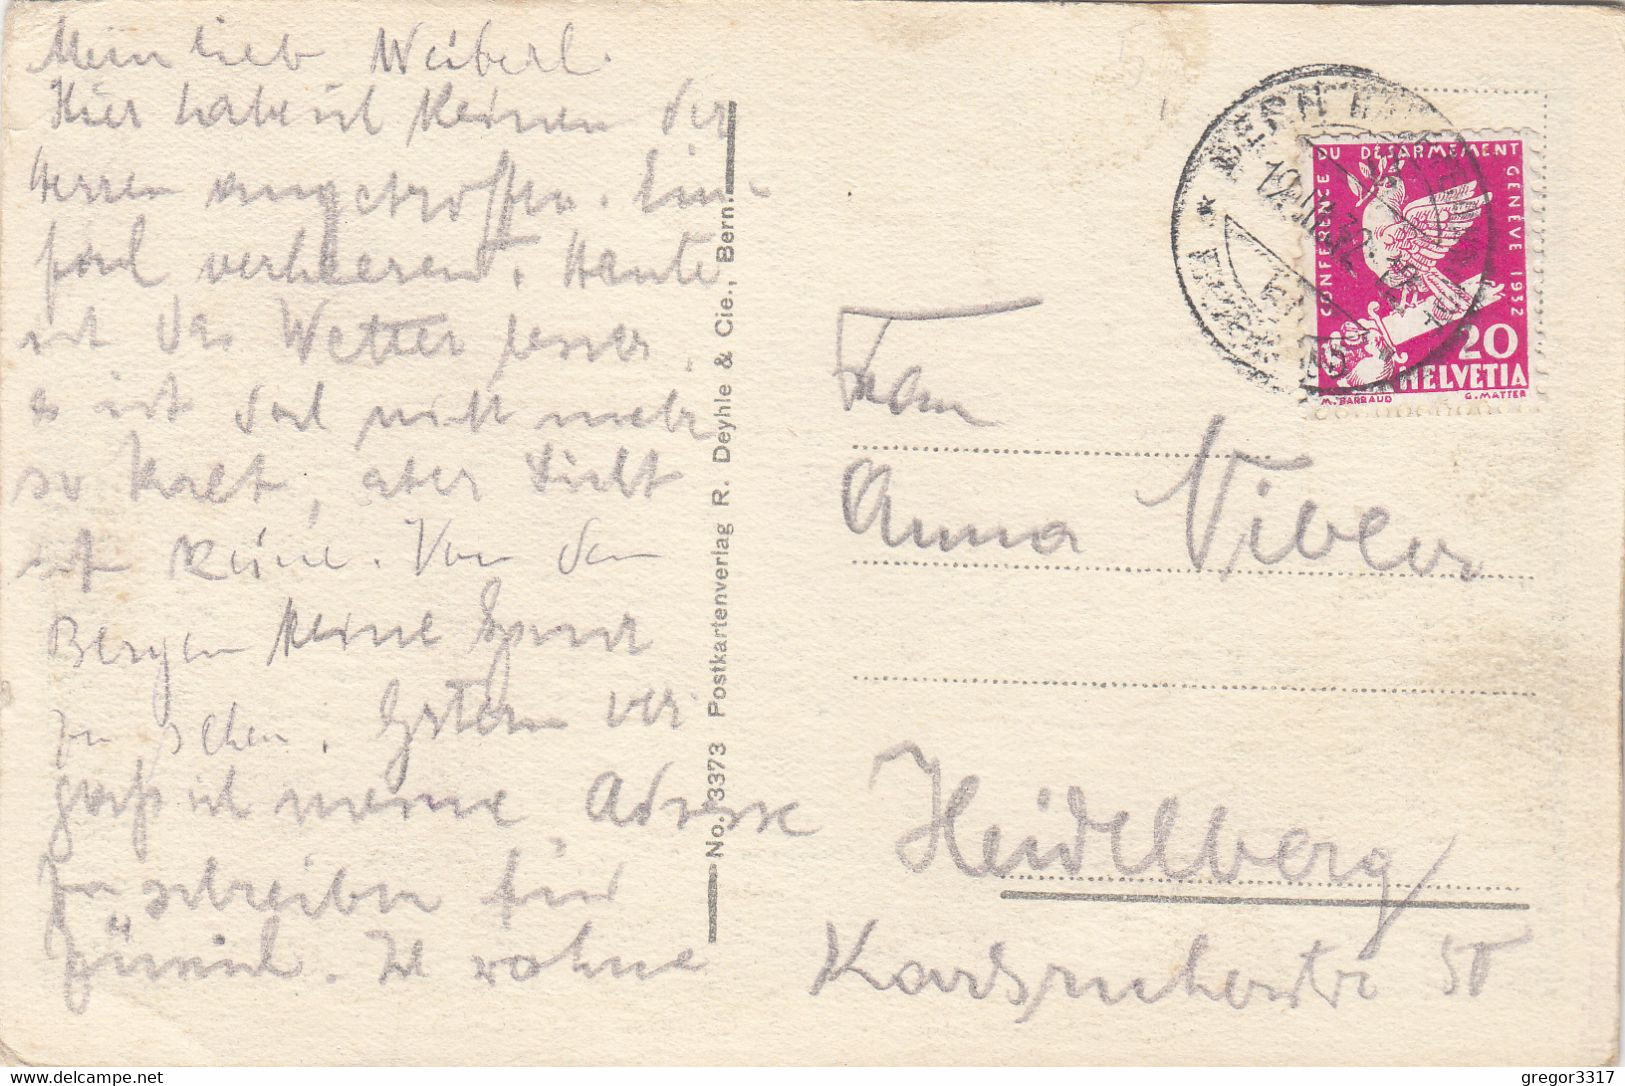 Mein lieb Weiberl.
Hier habe ich keinen der
Herren angetroffen. Ein-
fach verheerend. Heute
ist das Wetter besser,
es ist doch nicht mehr
so kalt, aber Sicht
ist keine. Von den
Bergen keine Spur
zu sehen. Gestern ver
gass ich meine Adresse
zu schreiben für
Zürich. Ich wohne
No. 3373 Postkartenverlag R. Deyhle & Cie., Bern.
BERN
CONFERENCE DU DÉSARMEMENT GENÈVE 1932
20
HELVETIA
M. BARRAUD G. MATTER
Frau
Anna
Heidelberg
Karlsruherstr 50
gregor3317